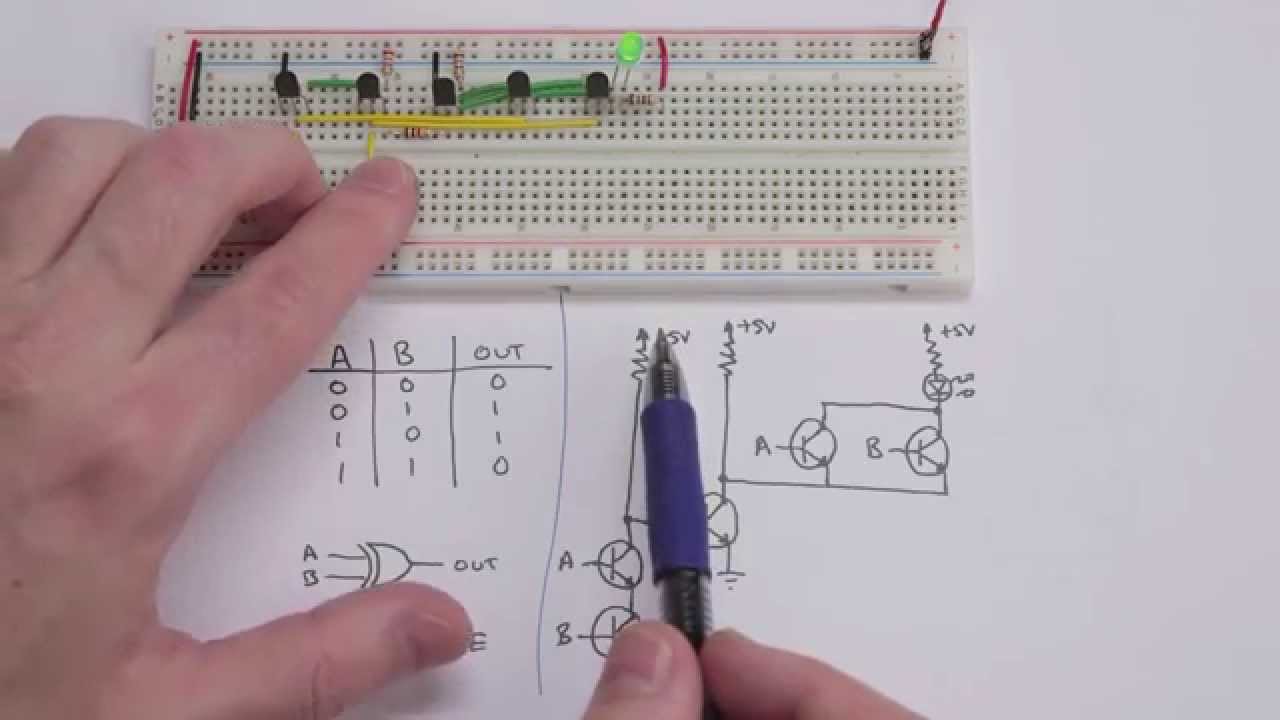 A B OUT
0 0 0
0 1 1
1 0 1
1 1 0
A
B
OUT
+5V
+5V
A
B
A
B